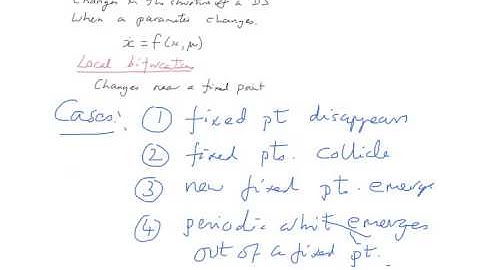 Changes in the structure of a DS
When a parameter changes.
ẋ = f(x, μ)
Local bifurcation
Changes near a fixed point
Cases: ① fixed pt disappears
② fixed pts. collide
③ new fixed pts. emerge
④ periodic orbit emerges
out of a fixed pt.